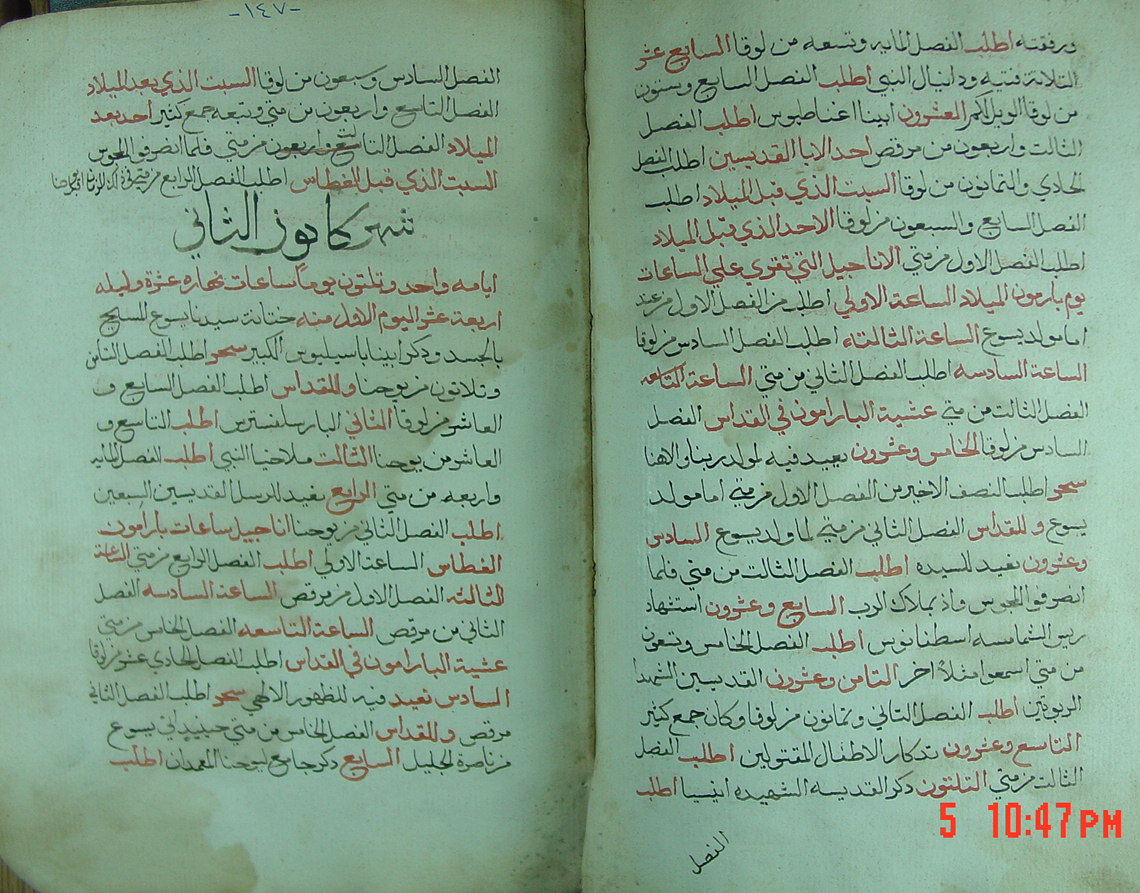 ورفقته اطلب الفصل المايه وتسعه من لوقا السابع عشر
التلاتة فتيه ودانيال النبي اطلب الفصل السابع وستون
من لوقا الويل لكم العشرون ابينا اغناطيوس اطلب الفصل
التالت واربعون من مرقص احد الابا القديسين اطلب الفصل
الحادي والتمانون من لوقا السبت الذي قبل الميلاد اطلب
الفصل السابع والسبعون من لوقا الاحد الذي قبل الميلاد
اطلب الفصل الاول من متي الاناجيل التي تقري علي الساعات
يوم بارمون الميلاد الساعة الاولي اطلب من الفصل الاول من عند
اما مولد يسوع الساعة التالته اطلب الفصل السادس من لوقا
الساعة السادسه اطلب الفصل التاني من متي الساعة التاسعه
الفصل التالت من متي عشية البارامون في القداس الفصل
السادس من لوقا الخامس وعشرون نعيد فيه لمولد ربنا والاهنا
سحر اطلب النصف الاخير من الفصل الاول من متي اما مولد
يسوع وللقداس الفصل التاني من متي لما ولد يسوع السادس
وعشرون نعيد للسيده اطلب الفصل التالت من متي فلما
انصرفوا المجوس واذ بملاك الرب السابع وعشرون استشهاد
ريس الشمامسه اسطفانوس اطلب الفصل الخامس وتسعون
من متي اسمعوا مثلاً اخر التامن وعشرون القديسين الشهدا
الربوتين اطلب الفصل التاني وتمانون من لوقا وكان جمع كتير
التاسع وعشرون تدكار الاطفال المقتولين اطلب الفصل
التالت من متي التلتون دكر القديسه الشهيده انيسيا اطلب
الفصل
5 10:47 PM
-١٤٧-
الفصل السادس وسبعون من لوقا السبت الذي بعد الميلاد
الفصل التاسع واربعون من متي وتبعه جمع كتير احد بعد
الميلاد الفصل التالت من متي فلما انصرفوا المجوس
السبت الذي قبل الغطاس اطلب الفصل الرابع من متي
شهر كانون الثاني
ايامه واحد وتلتون يوماً ساعات نهاره عشرة وليله
اربعة عشر اليوم الاول منه ختانة سيدنا يسوع المسيح
بالجسد ودكر ابينا باسيليوس الكبير سحر اطلب الفصل التامن
وتلاتون من يوحنا وللقداس اطلب الفصل السابع و
العاشر من لوقا التاني البار سلفسترس اطلب التاسع و
العاشر من يوحنا التالت ملاخيا النبي اطلب الفصل المايه
واربعه من متي الرابع نعيد للرسل القديسين السبعين
اطلب الفصل التاني من يوحنا اناجيل ساعات بارامون
الغطاس الساعة الاولي اطلب الفصل الرابع من متي الساعة
التالته الفصل الاول من مرقص الساعة السادسه الفصل
التاني من مرقص الساعة التاسعه الفصل الخامس من متي
عشية البارامون في القداس اطلب الفصل الحادي عشر من لوقا
السادس نعيد فيه للظهور الالهي سحر اطلب الفصل التاني
مرقص وللقداس الفصل الخامس من متي حينيد اتي يسوع
من ناصرة الجليل السابع دكر جامع ليوحنا المعمدان اطلب